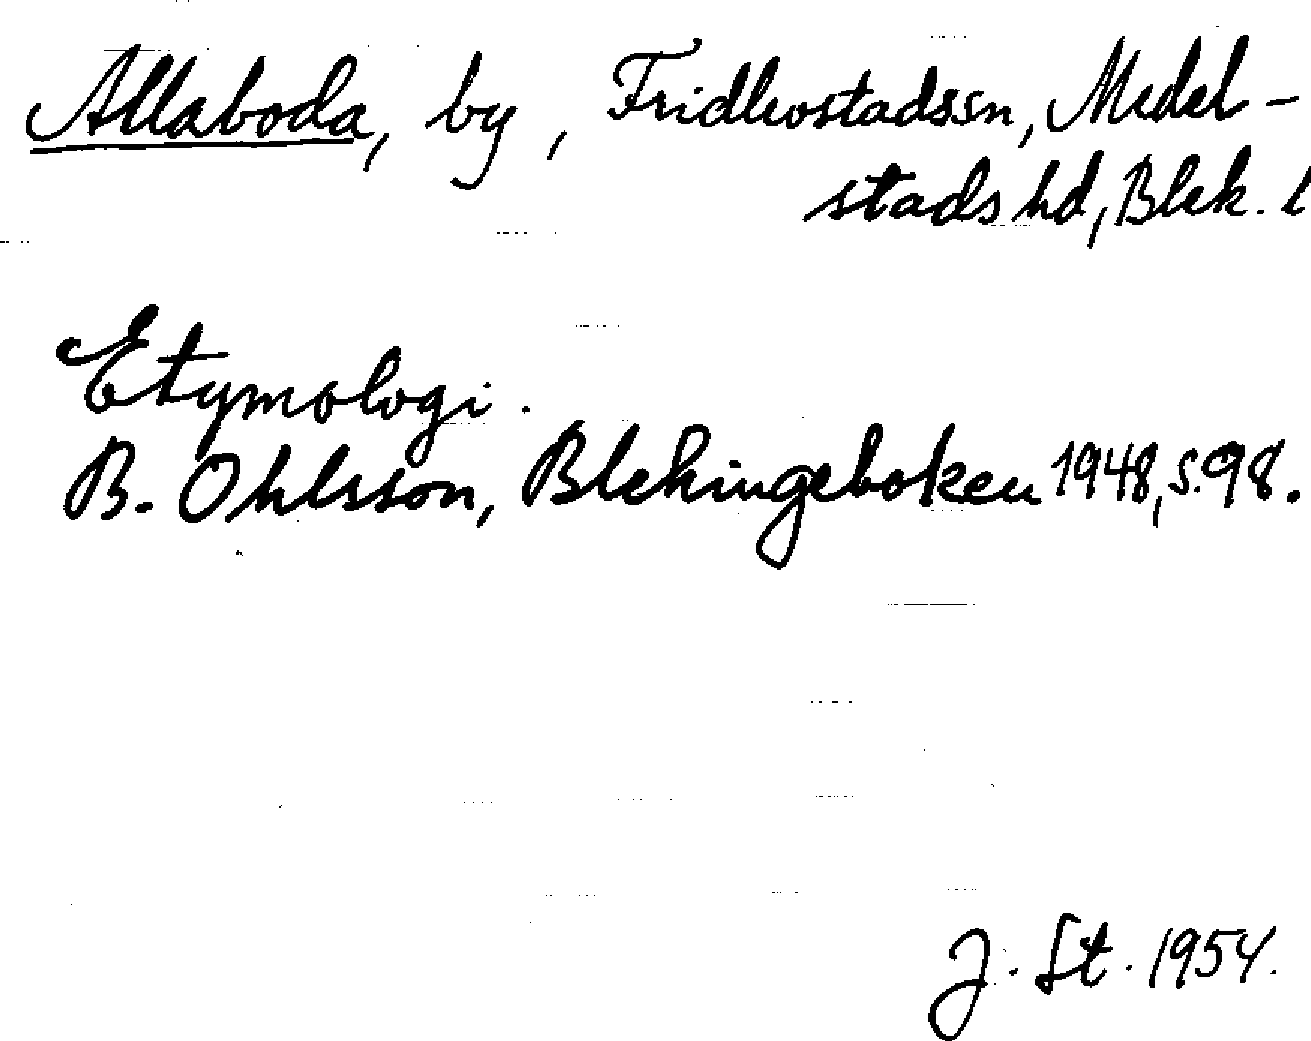 Allaboda, by, Fridlevstads sn, Medel-
stads hd, Blek. l
Etymologi.
B. Ohlsson, Blekingeboken 1948, s. 98.
J. St. 1954.